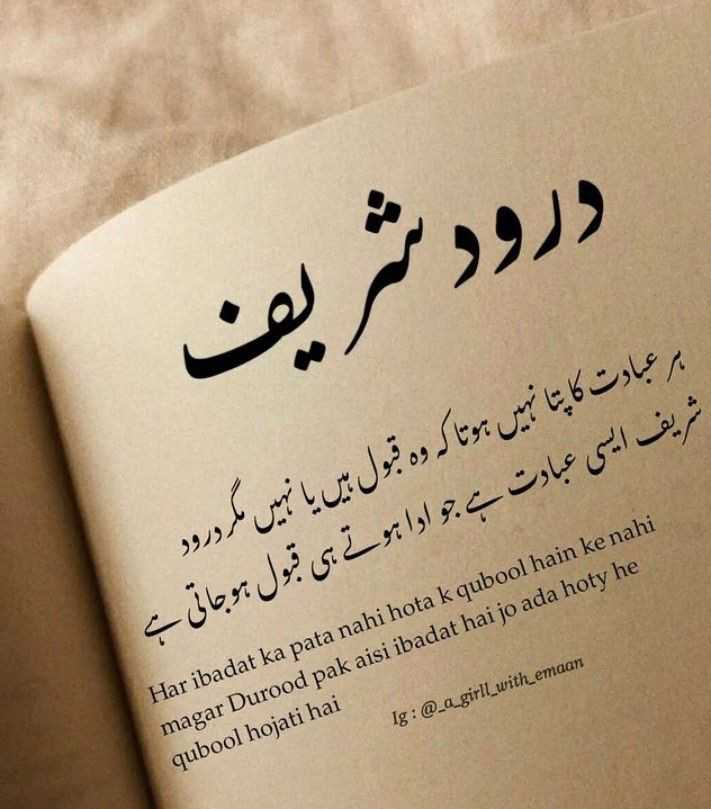 درود شریف
ہر عبادت کا پتا نہیں ہوتا کہ وہ قبول ہیں یا نہیں مگر درود
شریف ایسی عبادت ہے جو ادا ہوتے ہی قبول ہو جاتی ہے
Har ibadat ka pata nahi hota k qubool hain ke nahi
magar Durood pak aisi ibadat hai jo ada hoty he
qubool hojati hai
Ig : @_a_girll_with_emaan